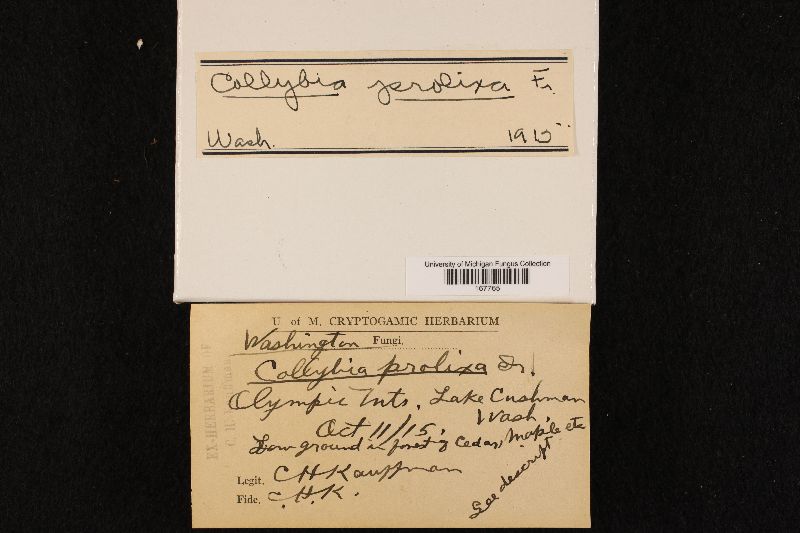 Collybia prolixa Fr.
Wash. 1915
University of Michigan Fungus Collection
167765
U of M. CRYPTOGAMIC HERBARIUM
Washington Fungi.
Collybia prolixa Fr!
Olympic Mts. Lake Cushman
Wash.
Oct 11/15.
Low ground in forest of Cedar, Maple etc
Legit. C H Kauffman
Fide. C.H.K.
See descript.
EX-HERBARIUM OF